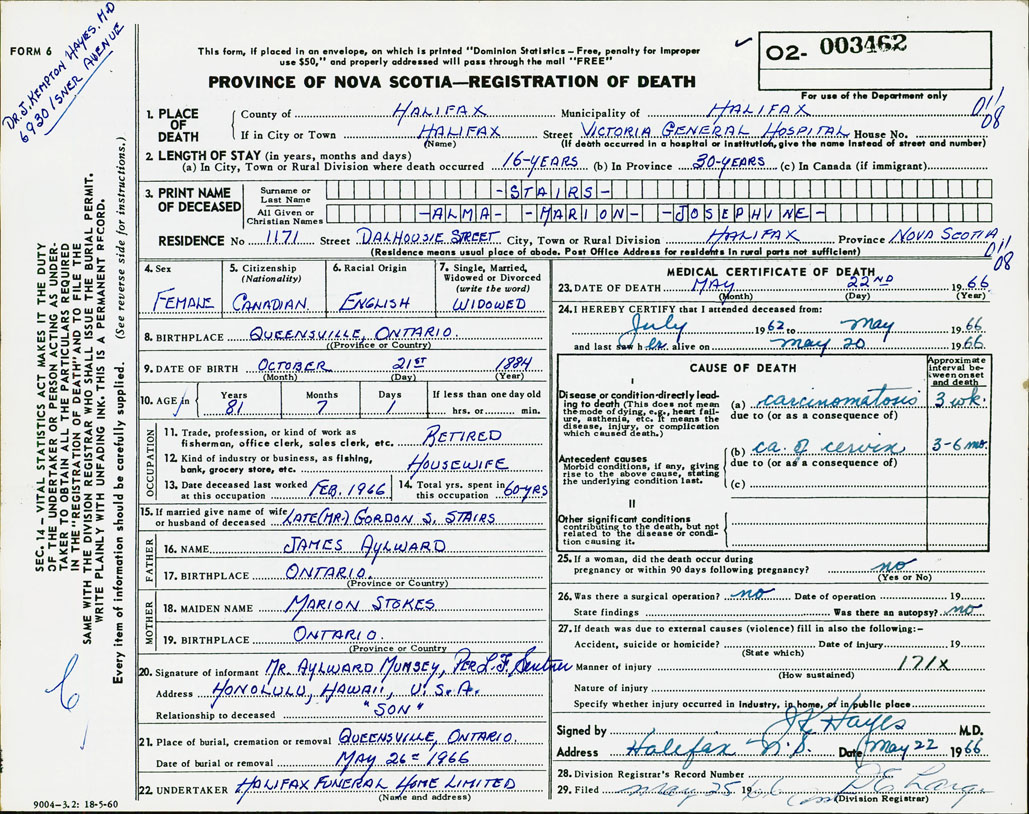 Dr. J. Kempton Hayes, M.D
6930 Isner Avenue
FORM 6
This form, if placed in an envelope, on which is printed "Dominion Statistics – Free, penalty for improper
use $50," and properly addressed will pass through the mail "FREE"
PROVINCE OF NOVA SCOTIA—REGISTRATION OF DEATH
O2- 003462
For use of the Department only
SEC. 14 – VITAL STATISTICS ACT MAKES IT THE DUTY
OF THE UNDERTAKER OR PERSON ACTING AS UNDER-
TAKER TO OBTAIN ALL THE PARTICULARS REQUIRED
IN THE "REGISTRATION OF DEATH" AND TO FILE THE
SAME WITH THE DIVISION REGISTRAR WHO SHALL ISSUE THE BURIAL PERMIT.
WRITE PLAINLY WITH UNFADING INK. THIS IS A PERMANENT RECORD.
Every item of information should be carefully supplied. (See reverse side for instructions.)
1. PLACE OF DEATH
County of HALIFAX Municipality of HALIFAX 011
08
If in City or Town HALIFAX Street VICTORIA GENERAL HOSPITAL House No.
(Name) (If death occurred in a hospital or institution, give the name instead of street and number)
2. LENGTH OF STAY (in years, months and days)
(a) In City, Town or Rural Division where death occurred 16-YEARS (b) In Province 30-YEARS (c) In Canada (if immigrant)
3. PRINT NAME OF DECEASED
Surname or Last Name -STAIRS-
All Given or Christian Names -ALMA- -MARION- -JOSEPHINE-
RESIDENCE No 1171 Street DALHOUSIE STREET City, Town or Rural Division HALIFAX Province NOVA SCOTIA
(Residence means usual place of abode. Post Office Address for residents in rural parts not sufficient) 011
08
4. Sex
FEMALE
5. Citizenship
(Nationality)
CANADIAN
6. Racial Origin
ENGLISH
7. Single, Married,
Widowed or Divorced
(write the word)
WIDOWED
8. BIRTHPLACE QUEENSVILLE, ONTARIO.
(Province or Country)
9. DATE OF BIRTH OCTOBER 21ST 1884
(Month) (Day) (Year)
10. AGE in Years Months Days If less than one day old
81 7 1 hrs. or min.
OCCUPATION
11. Trade, profession, or kind of work as
fisherman, office clerk, sales clerk, etc. RETIRED
12. Kind of industry or business, as fishing,
bank, grocery store, etc. HOUSEWIFE
13. Date deceased last worked
at this occupation FEB. 1966
14. Total yrs. spent in
this occupation 60-YRS
15. If married give name of wife
or husband of deceased LATE (MR.) GORDON S. STAIRS
FATHER
16. NAME JAMES AYLWARD
17. BIRTHPLACE ONTARIO.
(Province or Country)
MOTHER
18. MAIDEN NAME MARION STOKES
19. BIRTHPLACE ONTARIO.
(Province or Country)
20. Signature of informant MR. AYLWARD MUNSEY, Per L.F.
Address HONOLULU, HAWAII, U.S.A.
Relationship to deceased "SON"
21. Place of burial, cremation or removal QUEENSVILLE, ONTARIO.
Date of burial or removal MAY 26TH 1966
22. UNDERTAKER HALIFAX FUNERAL HOME LIMITED
(Name and address)
9004-3.2: 18-5-60
MEDICAL CERTIFICATE OF DEATH
23. DATE OF DEATH MAY 22ND 1966
(Month) (Day) (Year)
24. I HEREBY CERTIFY that I attended deceased from:
July 1962 to May 1966
and last saw her alive on May 20 1966
CAUSE OF DEATH
Approximate interval between onset and death
I
Disease or condition directly lead-
ing to death (This does not mean
the mode of dying, e.g., heart fail-
ure, asthenia, etc. It means the
disease, injury, or complication
which caused death.)
(a) carcinomatosis 3 wk.
due to (or as a consequence of)
(b) ca. of cervix 3-6 mo.
due to (or as a consequence of)
Antecedent causes
Morbid conditions, if any, giving
rise to the above cause, stating
the underlying condition last.
(c)
II
Other significant conditions
contributing to the death, but not
related to the disease or condi-
tion causing it.
25. If a woman, did the death occur during
pregnancy or within 90 days following pregnancy? no
(Yes or No)
26. Was there a surgical operation? no Date of operation 19
State findings Was there an autopsy? no
27. If death was due to external causes (violence) fill in also the following:-
Accident, suicide or homicide? Date of injury 19
(State which)
Manner of injury 171X
(How sustained)
Nature of injury
Specify whether injury occurred in industry, in home, or in public place
Signed by JK Hayes M.D.
Address Halifax N.S. Date May 22 1966
28. Division Registrar's Record Number
29. Filed May 25 1966
(Division Registrar)